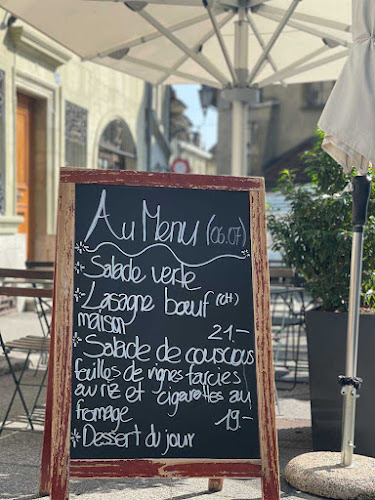 Au Menu (06.07)
Salade verte
Lasagne bœuf (CH)
maison
21.-
Salade de couscous
feuilles de vignes farcies
au riz et cigarettes au
fromage 19.-
Dessert du jour